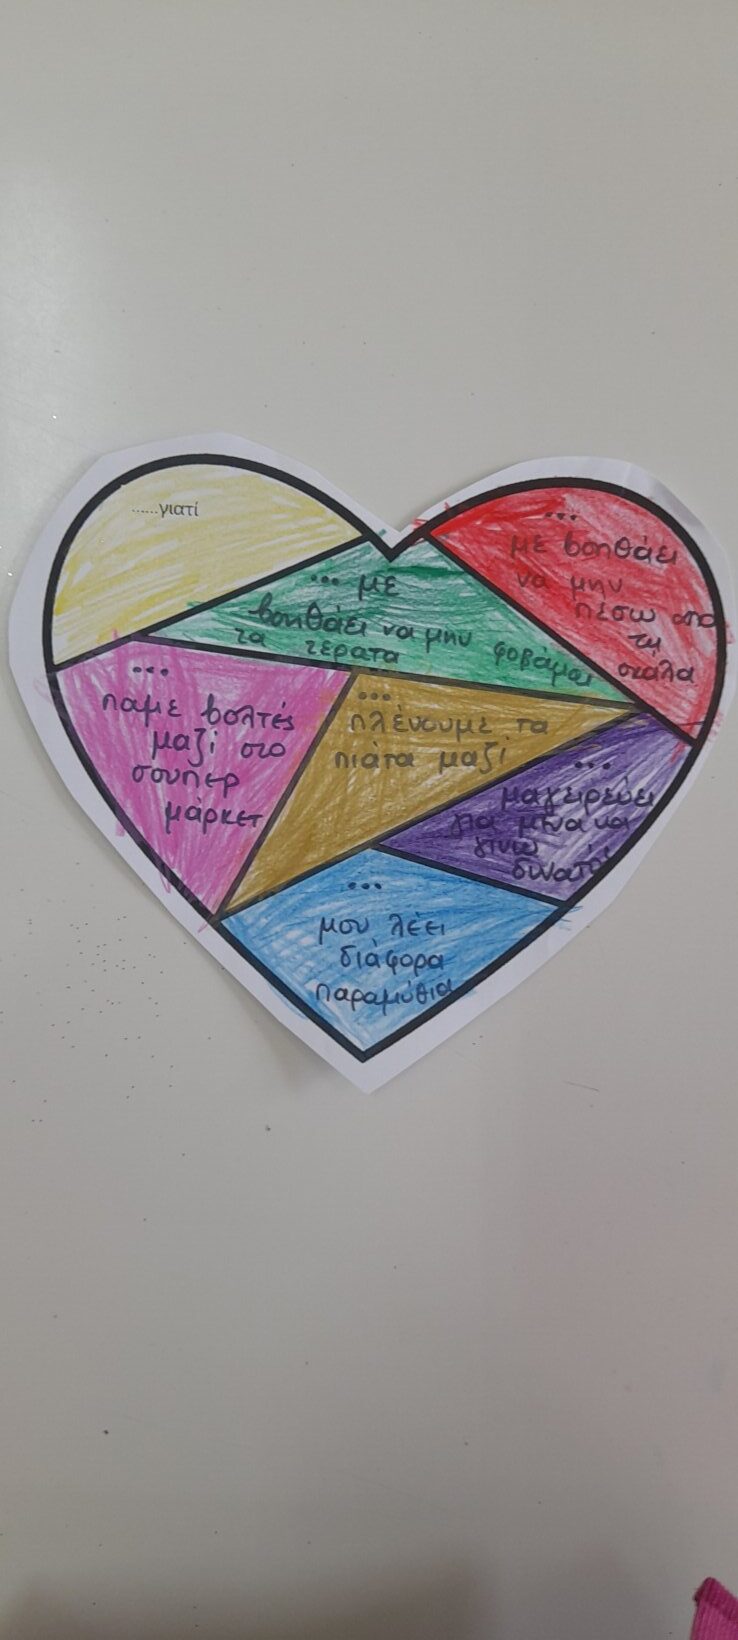 ......γιατί
... με
βοηθάει να μην φοβάμαι
τα τέρατα
...
με βοηθάει
να μην
πέσω από
τη
σκάλα
...
παμε βολτές
μαζί στο
σουπερ
μάρκετ
...
πλένουμε τα
πιάτα μαζί
...
μαγειρεύει
για μένα να
γίνω
δυνατός
...
μου λέει
διάφορα
παραμύθια